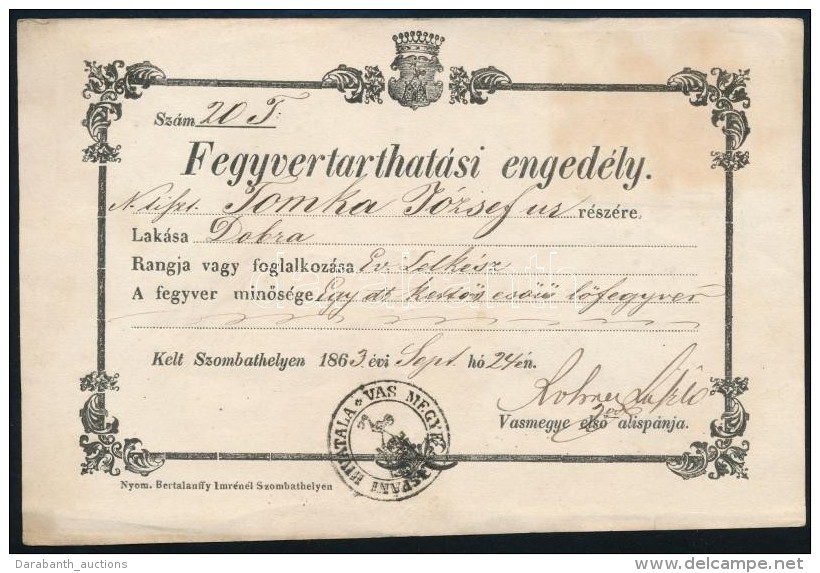 Szám 20 T:
Fegyvertarthatási engedély.
Tomka József ur részére
Lakása Dobra
Rangja vagy foglalkozása Ev. Lelkész
A fegyver minősége Egy dt. kettős csöűü lőfegyver
Kelt Szombathelyen 1863 évi Sept. hó 24én.
Vasmegye első alispánja.
VAS MEGYE ALISPÁNI HIVATALA
Nyom. Bertalanffy Imrénél Szombathelyen
darabanth
Darabanth_auctions
delcampe.net